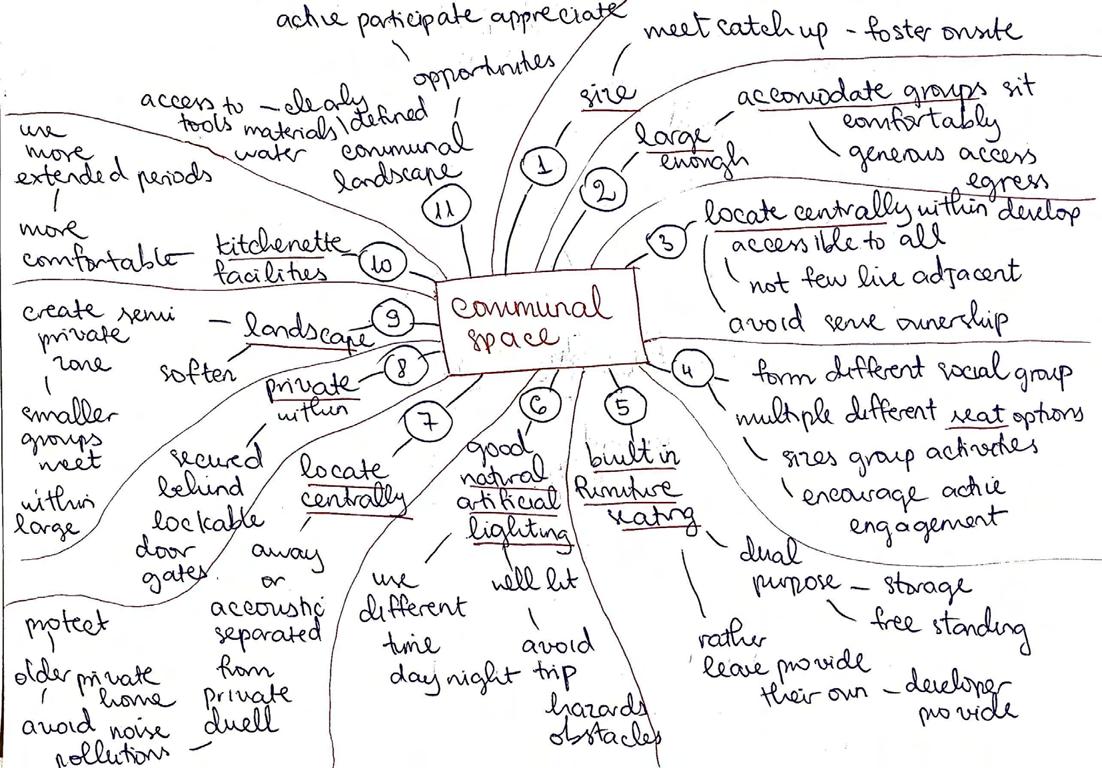 communal
space
1
size
meet catch up - foster onsite
2
large
enough
accomodate groups sit
comfortably
generous access
egress
3
locate centrally within develop
accessible to all
not few live adjacent
avoid sense ownership
4
form different social group
multiple different seat options
sizes group activities
encourage active
engagement
5
built in
furniture
seating
dual
purpose - storage
free standing
rather
leave provide
their own - developer
provide
6
good
natural
artificial
lighting
use
different
time
day night
well lit
avoid
trip
hazards
obstacles
7
locate
centrally
away
or
accoustic
separated
from
private
dwell
protect
older private
home
avoid noise
pollutions
8
private
within
secured
behind
lockable
door
gates
9
landscape
soften
create semi
private
zone
smaller
groups
meet
within
large
10
kitchenette
facilities
more
comfortable
use
more
extended periods
11
communal
landscape
clearly
defined
access to
tools materials
water
opportunities
active participate appreciate